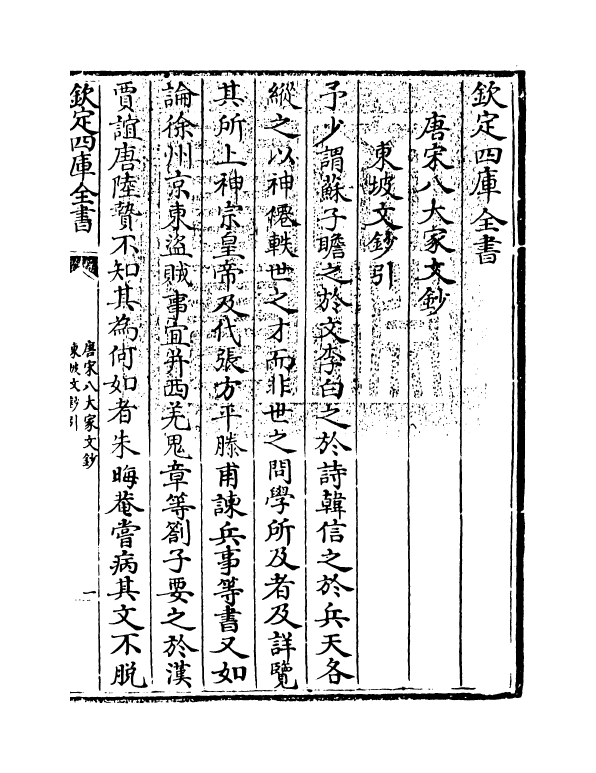 欽定四庫全書
唐宋八大家文鈔
東坡文鈔引
予少謂蘇子瞻之於文李白之於詩韓信之於兵天各
縱之以神僊軼世之才而非世之問學所及者及詳覽
其所上神宗皇帝及代張方平滕甫諫兵事等書又如
論徐州京東盜賊事宜并西羌鬼章等劄子要之於漢
賈誼唐陸贄不知其為何如者朱晦菴嘗病其文不脫
欽定四庫全書
唐宋八大家文鈔
東坡文鈔引
一